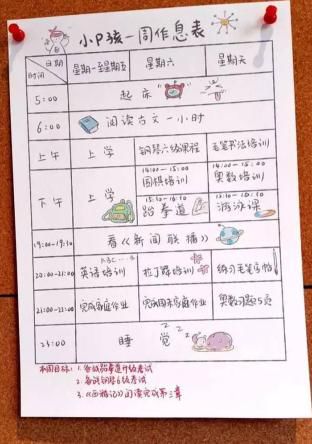 小P孩一周作息表
日期
时间
星期一至星期五 星期六 星期天
5:00 起床
6:00 阅读古文一小时
上午 上学 钢琴六级课程 毛笔书法培训
下午 上学 14:00-15:00 14:00-15:00
围棋培训 奥数培训
15:30-16:30 15:30-16:30
跆拳道 游泳课
19:00-19:30 看《新闻联播》
ABC...
20:00-21:00 英语培训 拉丁舞培训 练习毛笔字帖
21:00-22:00 完成家庭作业 完成周末家庭作业 奥数习题5页
23:00 睡觉
ZZZ
本周目标: 1. 备战跆拳道升级考试
2. 备战钢琴6级考试
3. 《西游记》阅读完成第三章